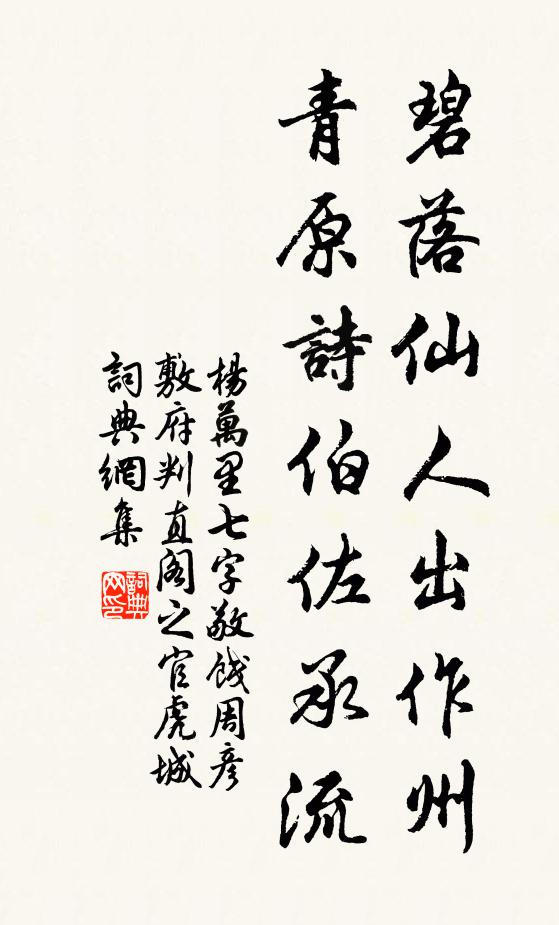 碧落仙人出作州
青原詩伯佐承流
楊萬里七字敬餞周彥
敷府判直閣之官虎城
詞典網集
詞典网印